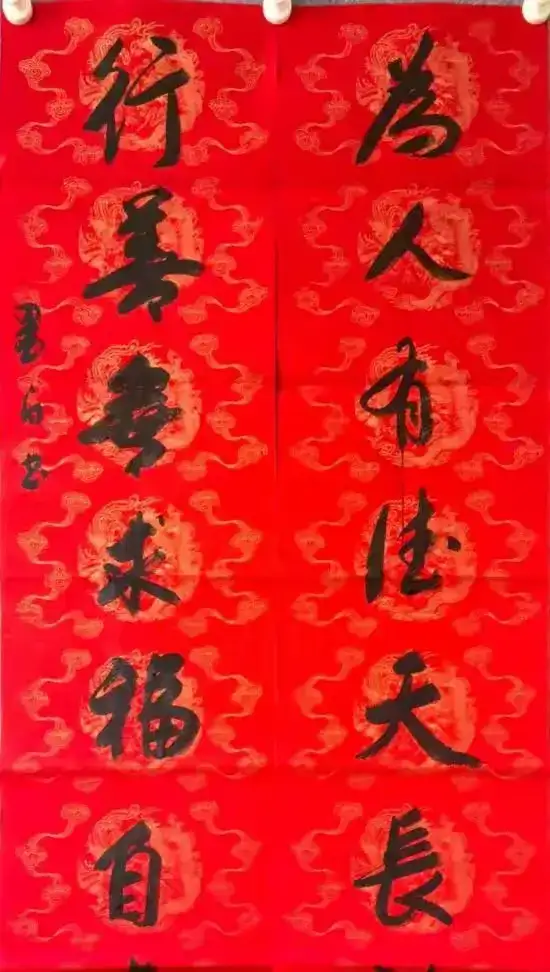 為人有德天長
行善無求福自